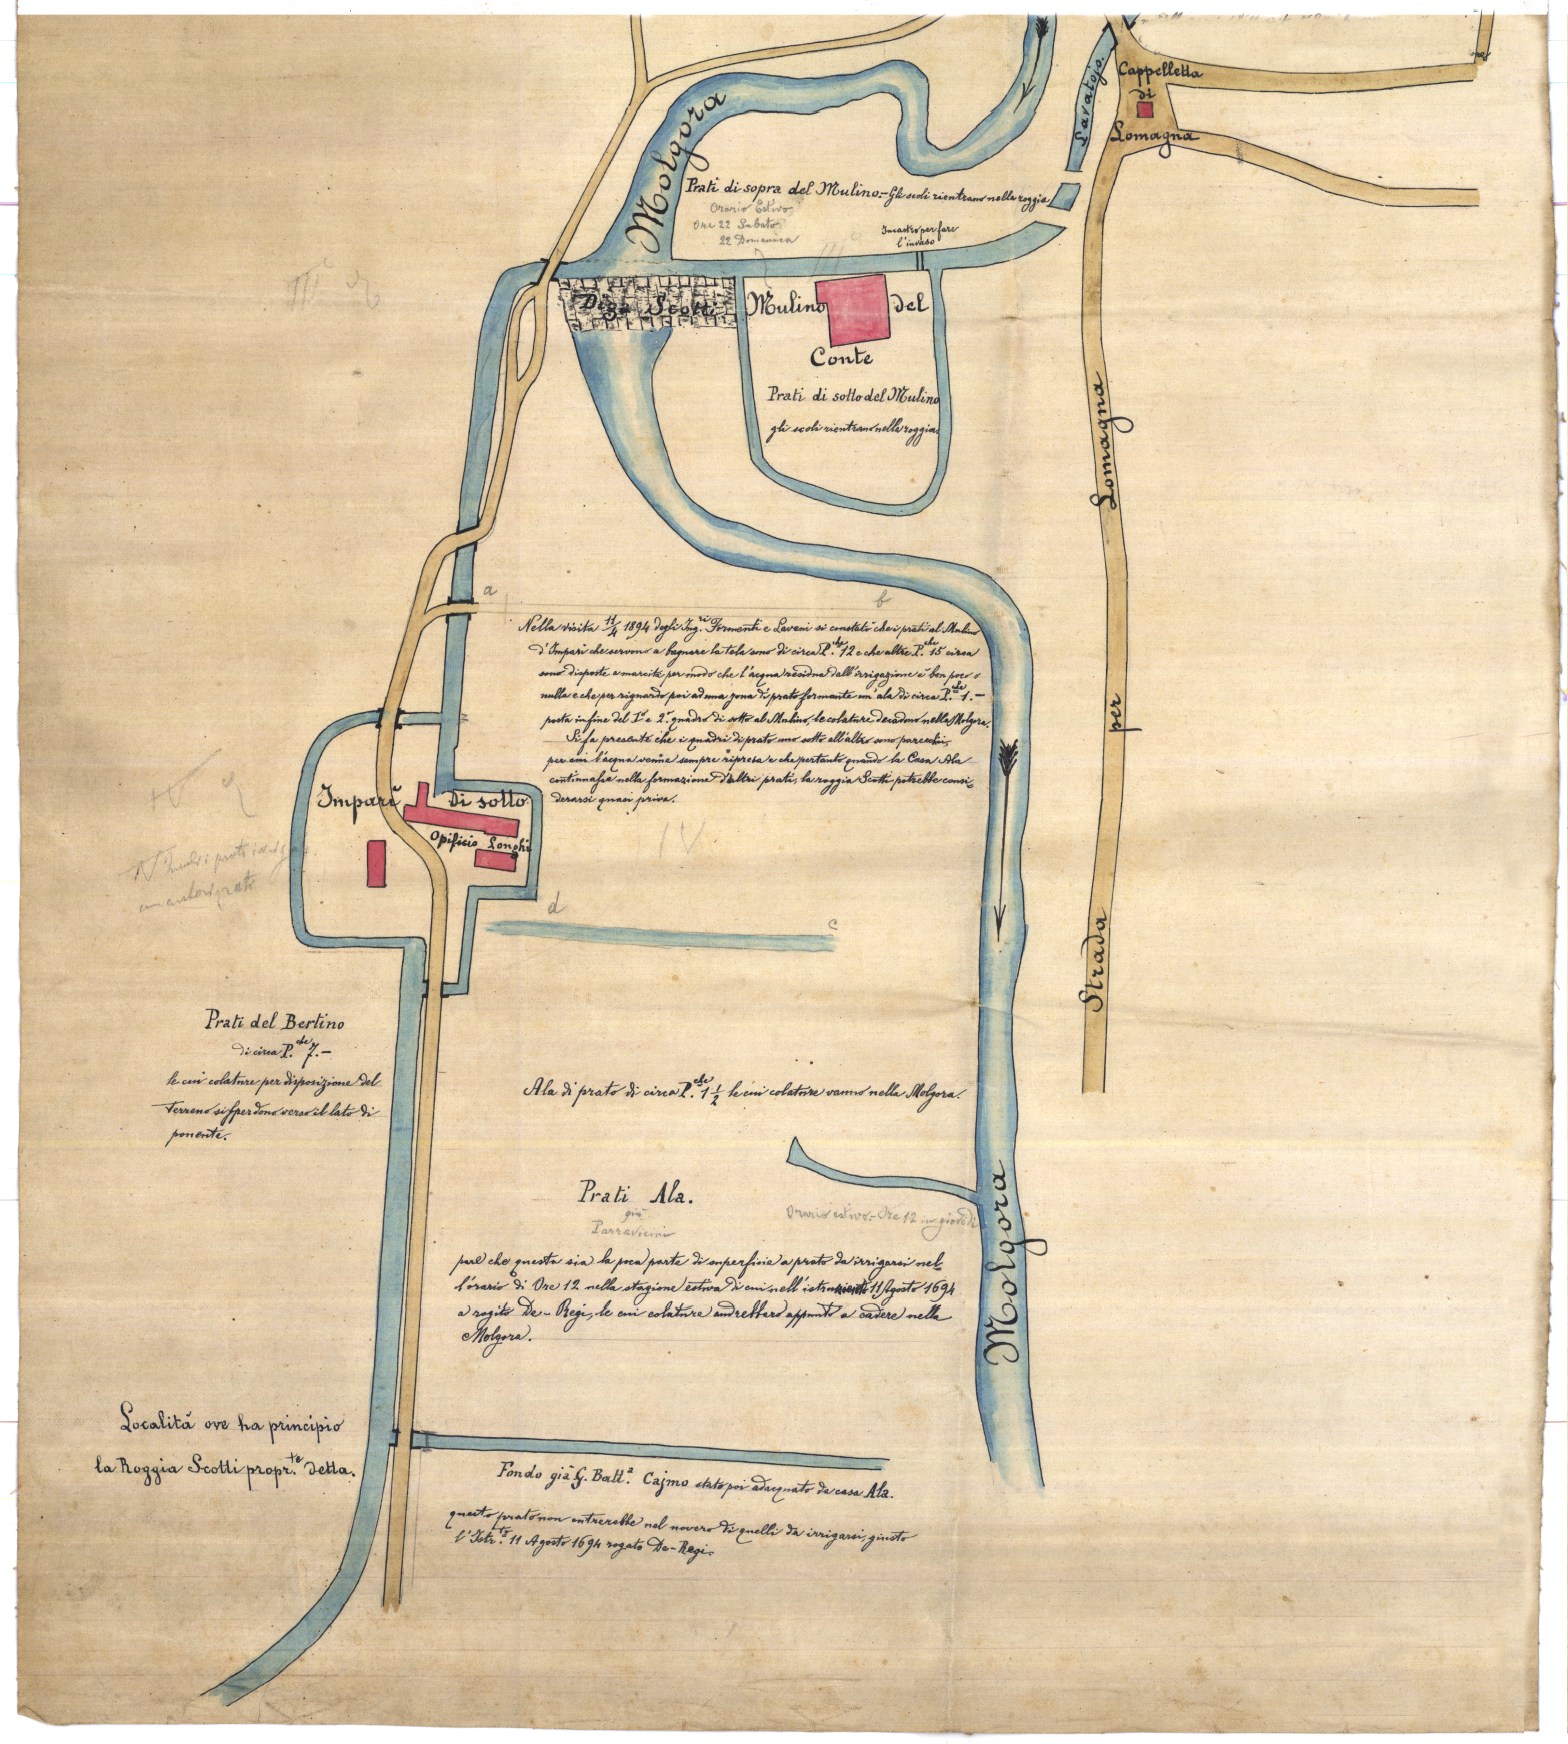 Lavatojo.
Cappelletta
di
Lomagna
Molgora
Prati di sopra del Mulino.- Gli scoli rientrano nella roggia.
Orario Estivo
Ore 22 Sabato
22 Domenica
Incastro per fare
l'invaso
Diga Scotti
Mulino del
Conte
Prati di sotto del Mulino
gli scoli rientrano nella roggia.
Strada per Lomagna
a
b
Nella visita 11/4 1894 degli Ing.ri Formenti e Laveni si constatò che i prati al Mulino
d'Imparì che servono a bagnare la tela sono di circa P.che 12 e che altre P.che 15 circa
sono disposte a marcita per modo che l'acqua residua dall'irrigazione è ben poco o
nulla e che per riguardo poi ad una zona di prato formante un'ala di circa P.che 1.-
posta infine del 1.o e 2.o quadro di sotto al Mulino, le colature decadono nella Molgora.
Si fa presente che i quadri di prato uno sotto all'altro sono parecchi,
per cui l'acqua venne sempre ripresa e che pertanto quando la Casa Ala
continuasse nella formazione d'altri prati, la roggia Scotti potrebbe consi-
derarsi quasi priva.
Imparì di sotto
Opificio Longhi
IV
d
c
Prati del Bertino
di circa P.che 7.-
le cui colature per disposizione del
terreno si sperdono verso il lato di
ponente.
Ala di prato di circa P.che 1 1/2 le cui colature vanno nella Molgora.
Prati Ala.
già
Parravicini
Orario estivo.- Ore 12 in giovedì
pare che questa sia la poca parte di superficie a prato da irrigarsi nel-
l'orario di Ore 12 nella stagione estiva di cui nell'istrumento 11 Agosto 1694
a rogito De-Regi, le cui colature andrebbero appunto a cadere nella
Molgora.
Molgora
Località ove ha principio
la Roggia Scotti propr.te detta.
Fondo già G. Batt.a Cajmo stato poi adacquato da casa Ala.
questo prato non entrerebbe nel novero di quelli da irrigarsi, giusto
l'Istr.to 11 Agosto 1694 rogato De-Regi.